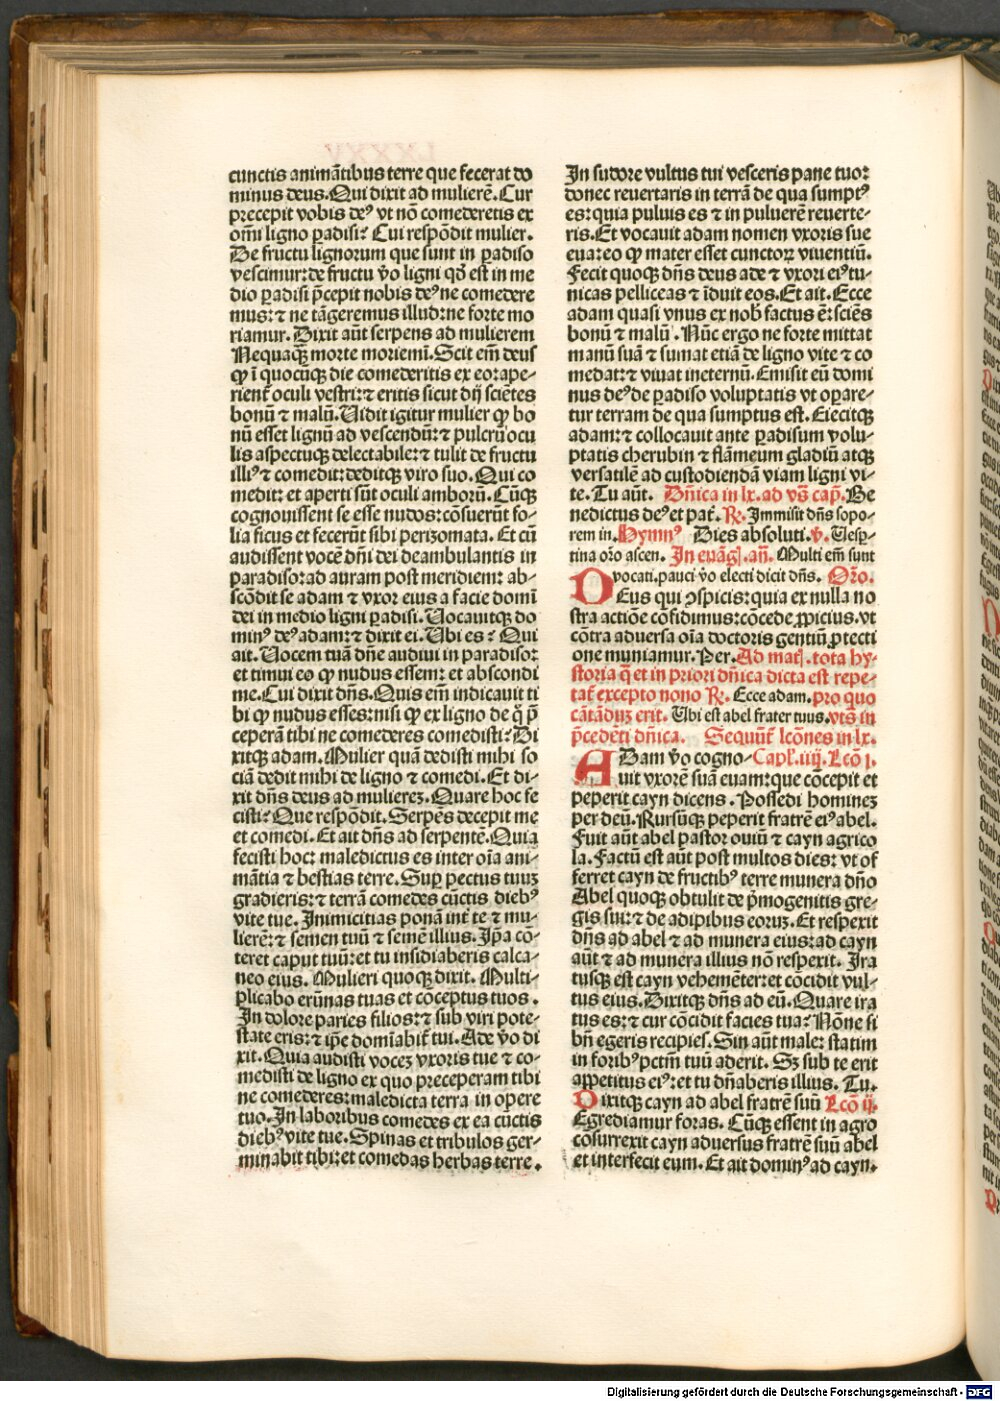 cunctis animãtibus terre que fecerat do
minus deus. Qui dixit ad mulierẽ. Cur
precepit vobis de⁹ vt nõ comederetis ex
om̃i ligno ꝑadisi? Cui respõdit mulier.
De fructu lignorum que sunt in ꝑadiso
vescimur: de fructu v̓o ligni qd̓ est in me
dio ꝑadisi p̃cepit nobis de⁹ ne comedere
mus: ⁊ ne tãgeremus illud: ne forte mo
riamur. Dixit aũt serpens ad mulierem
Nequaq̃ꝫ morte moriemĩ. Scit em̃ deus
ꝙ ĩ quocũqꝫ die comederitis ex eo: ape-
rient̃ oculi vestri: ⁊ eritis sicut dij sciẽtes
bonũ ⁊ malũ. Uidit igitur mulier ꝙ bo
nũ esset lignũ ad vescendũ: ⁊ pulcrũ ocu
lis aspectuqꝫ delectabile: ⁊ tulit de fructu
illi⁹ ⁊ comedit: deditqꝫ viro suo. Qui co
medit: et aperti sũt oculi amborũ. Cũqꝫ
cognouissent se esse nudos: cõsuerũt fo-
lia ficus et fecerũt sibi perizomata. Et cũ
audissent vocẽ dñi dei deambulantis in
paradiso: ad auram post meridiem: ab-
scõdit se adam ⁊ vxor eius a facie domĩ
dei in medio ligni ꝑadisi. Uocauitqꝫ do
min⁹ de⁹ adam: ⁊ dixit ei. Ubi es? Qui
ait. Uocem tuã dñe audiui in paradiso:
et timui eo ꝙ nudus essem: et abscondi
me. Cui dixit dñs. Quis em̃ indicauit ti
bi ꝙ nudus esses: nisi ꝙ ex ligno de q̃ p̃
ceperã tibi ne comederes comedisti? Di
xitqꝫ adam. Mulier quã dedisti mihi so
ciã dedit mihi de ligno ⁊ comedi. Et di-
xit dñs deus ad mulierẽ. Quare hoc fe
cisti? Que respõdit. Serpẽs decepit me
et comedi. Et ait dñs ad serpentẽ. Quia
fecisti hoc: maledictus es inter oĩa ani-
mãtia ⁊ bestias terre. Suꝑ pectus tuuꝫ
gradieris: ⁊ terrã comedes cũctis dieb⁹
vite tue. Inimicitias ponã int̓ te ⁊ mu-
lierẽ: ⁊ semen tuũ ⁊ semẽ illius. Ip̃a cõ-
teret caput tuũ: et tu insidiaberis calca-
neo eius. Mulieri quoqꝫ dixit. Multi-
plicabo erũnas tuas et cõceptus tuos.
In dolore paries filios: ⁊ sub viri pote-
state eris: ⁊ ip̃e domiabit̃ tui. Ade v̓o di
xit. Quia audisti voceꝫ vxoris tue ⁊ co-
medisti de ligno ex quo preceperam tibi
ne comederes: maledicta terra in opere
tuo. In laboribus comedes ex ea cũctis
dieb⁹ vite tue. Spinas et tribulos ger-
minabit tibi: et comedas herbas terre.
In sudore vultus tui vesceris pane tuo:
donec reuertaris in terrã de qua sumpt⁹
es: quia puluis es ⁊ in puluerẽ reuerte-
ris. Et vocauit adam nomen vxoris sue
eua: eo ꝙ mater esset cunctoꝝ viuentiũ.
Fecit quoqꝫ dñs deus ade ⁊ vxori ei⁹ tu-
nicas pelliceas ⁊ ĩduit eos. Et ait. Ecce
adam quasi vnus ex nob̃ factus ẽ: sciẽs
bonũ ⁊ malũ. Nũc ergo ne forte mittat
manũ suã ⁊ sumat etiã de ligno vite ⁊ co
medat: ⁊ viuat incternũ. Emisit eũ domi
nus de⁹ de ꝑadiso voluptatis vt oꝑare-
tur terram de qua sumptus est. Eiecitqꝫ
adam: ⁊ collocauit ante ꝑadisum volu-
ptatis cherubin ⁊ flãmeum gladiũ atqꝫ
versatilẽ ad custodiendã viam ligni vi-
te. Tu aũt. Dñica in lx. ad vs̃ cap̃. Be
nedictus de⁹ et pat̃. R̃. Immisit dñs sopo-
rem in. Hymn⁹ Dies absoluti. v̓. Uesꝑ-
tina or̃o ascen. In euãg̃. añ. Multi em̃ sunt
vocati. pauci v̓o electi dicit dñs. Or̃o.
DEus qui ꝯspicis: quia ex nulla no
stra actiõe cõfidimus: cõcede ꝓpicius. vt
cõtra aduersa oĩa doctoris gentiũ ꝓtecti
one muniamur. Per. Ad mat̃. tota hy-
storia q̃ et in priori dñica dicta est repe-
tat̃ excepto nono R̃. Ecce adam. pro quo
cãtãduꝫ erit. Ubi est abel frater tuus. vts̃ in
p̃cedẽti dñica. Sequũt̃ lcõnes in lx.
ADam v̓o cogno- Capl̓. iiij. Lcõ j.
uit vxorẽ suã euam: que cõcepit et
peperit cayn dicens. Possedi homineꝫ
per deũ. Rursũqꝫ peperit fratrẽ ei⁹ abel.
Fuit aũt abel pastor ouiũ ⁊ cayn agrico
la. Factũ est aũt post multos dies: vt of
ferret cayn de fructib⁹ terre munera dño
Abel quoqꝫ obtulit de p̓mogenitis gre-
gis sui: ⁊ de adipibus eoruꝫ. Et respexit
dñs ad abel ⁊ ad munera eius: ad cayn
aũt ⁊ ad munera illius nõ respexit. Ira
tusqꝫ est cayn vehemẽter: et cõcidit vul-
tus eius. Dixitqꝫ dñs ad eũ. Quare ira
tus es: ⁊ cur cõcidit facies tua? Nõne si
bñ egeris recipies. Sin aũt male: statim
in forib⁹ pctm̃ tuũ aderit. Sꝫ sub te erit
appetitus ei⁹: et tu dñaberis illius. Tu.
Dixitqꝫ cayn ad abel fratrẽ suũ Lcõ ij.
Egrediamur foras. Cũqꝫ essent in agro
cõsurrexit cayn aduersus fratrẽ suũ abel
et interfecit eum. Et ait domin⁹ ad cayn.
Digitalisierung gefördert durch die Deutsche Forschungsgemeinschaft - DFG